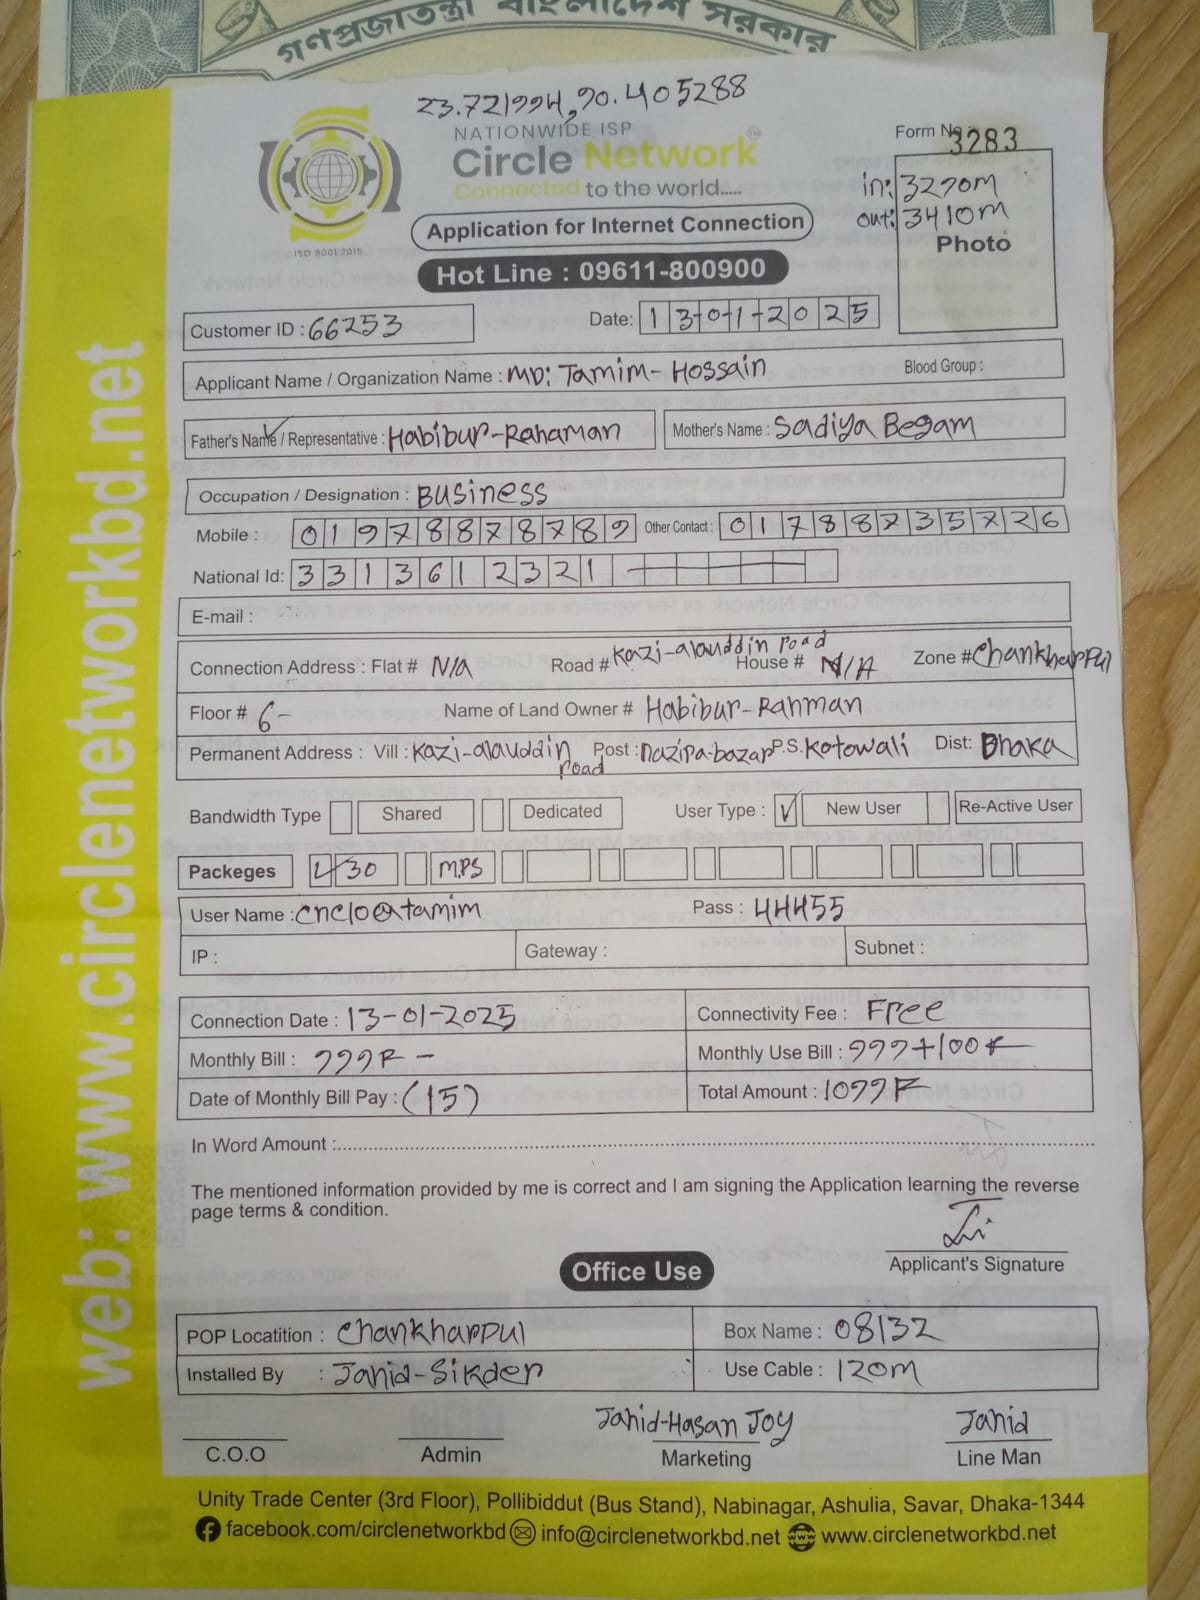 গণপ্রজাতন্ত্রী বাংলাদেশ সরকার
23.721994,90.405288
NATIONWIDE ISP
Circle Network™
Connected to the world.....
ISO 9001:2015
Form No 3283
in: 3270m
out: 3410m
Photo
Application for Internet Connection
Hot Line : 09611-800900
Customer ID : 66253
Date: 13-01-2025
Applicant Name / Organization Name : MD: Tamim-Hossain Blood Group :
Father's Name / Representative : Habibur-Rahaman Mother's Name : Sadiya Begam
Occupation / Designation : Business
Mobile : 01978878789 Other Contact : 01788735726
National Id: 3313612321
E-mail :
Connection Address : Flat # N/A Road # Kazi-alauddin road House # N/A Zone # Chankharpul
Floor # 6- Name of Land Owner # Habibur-Rahman
Permanent Address : Vill : Kazi-alauddin road Post : nazira-bazar P.S. Kotowali Dist: Dhaka
Bandwidth Type Shared Dedicated User Type : ✓ New User Re-Active User
Packeges 30 M.PS
User Name : cnclo@tamim Pass : 44455
IP : Gateway : Subnet :
Connection Date : 13-01-2025 Connectivity Fee : Free
Monthly Bill : 999 Monthly Use Bill : 999+100
Date of Monthly Bill Pay : (15) Total Amount : 1099
In Word Amount :
The mentioned information provided by me is correct and I am signing the Application learning the reverse
page terms & condition.
Applicant's Signature
Office Use
POP Locatition : Chankharpul Box Name : 08132
Installed By : Jahid-Sikder Use Cable : 120m
Jahid-Hasan Joy Jahid
C.O.O Admin Marketing Line Man
Unity Trade Center (3rd Floor), Pollibiddut (Bus Stand), Nabinagar, Ashulia, Savar, Dhaka-1344
facebook.com/circlenetworkbd info@circlenetworkbd.net www.circlenetworkbd.net
web: www.circlenetworkbd.net